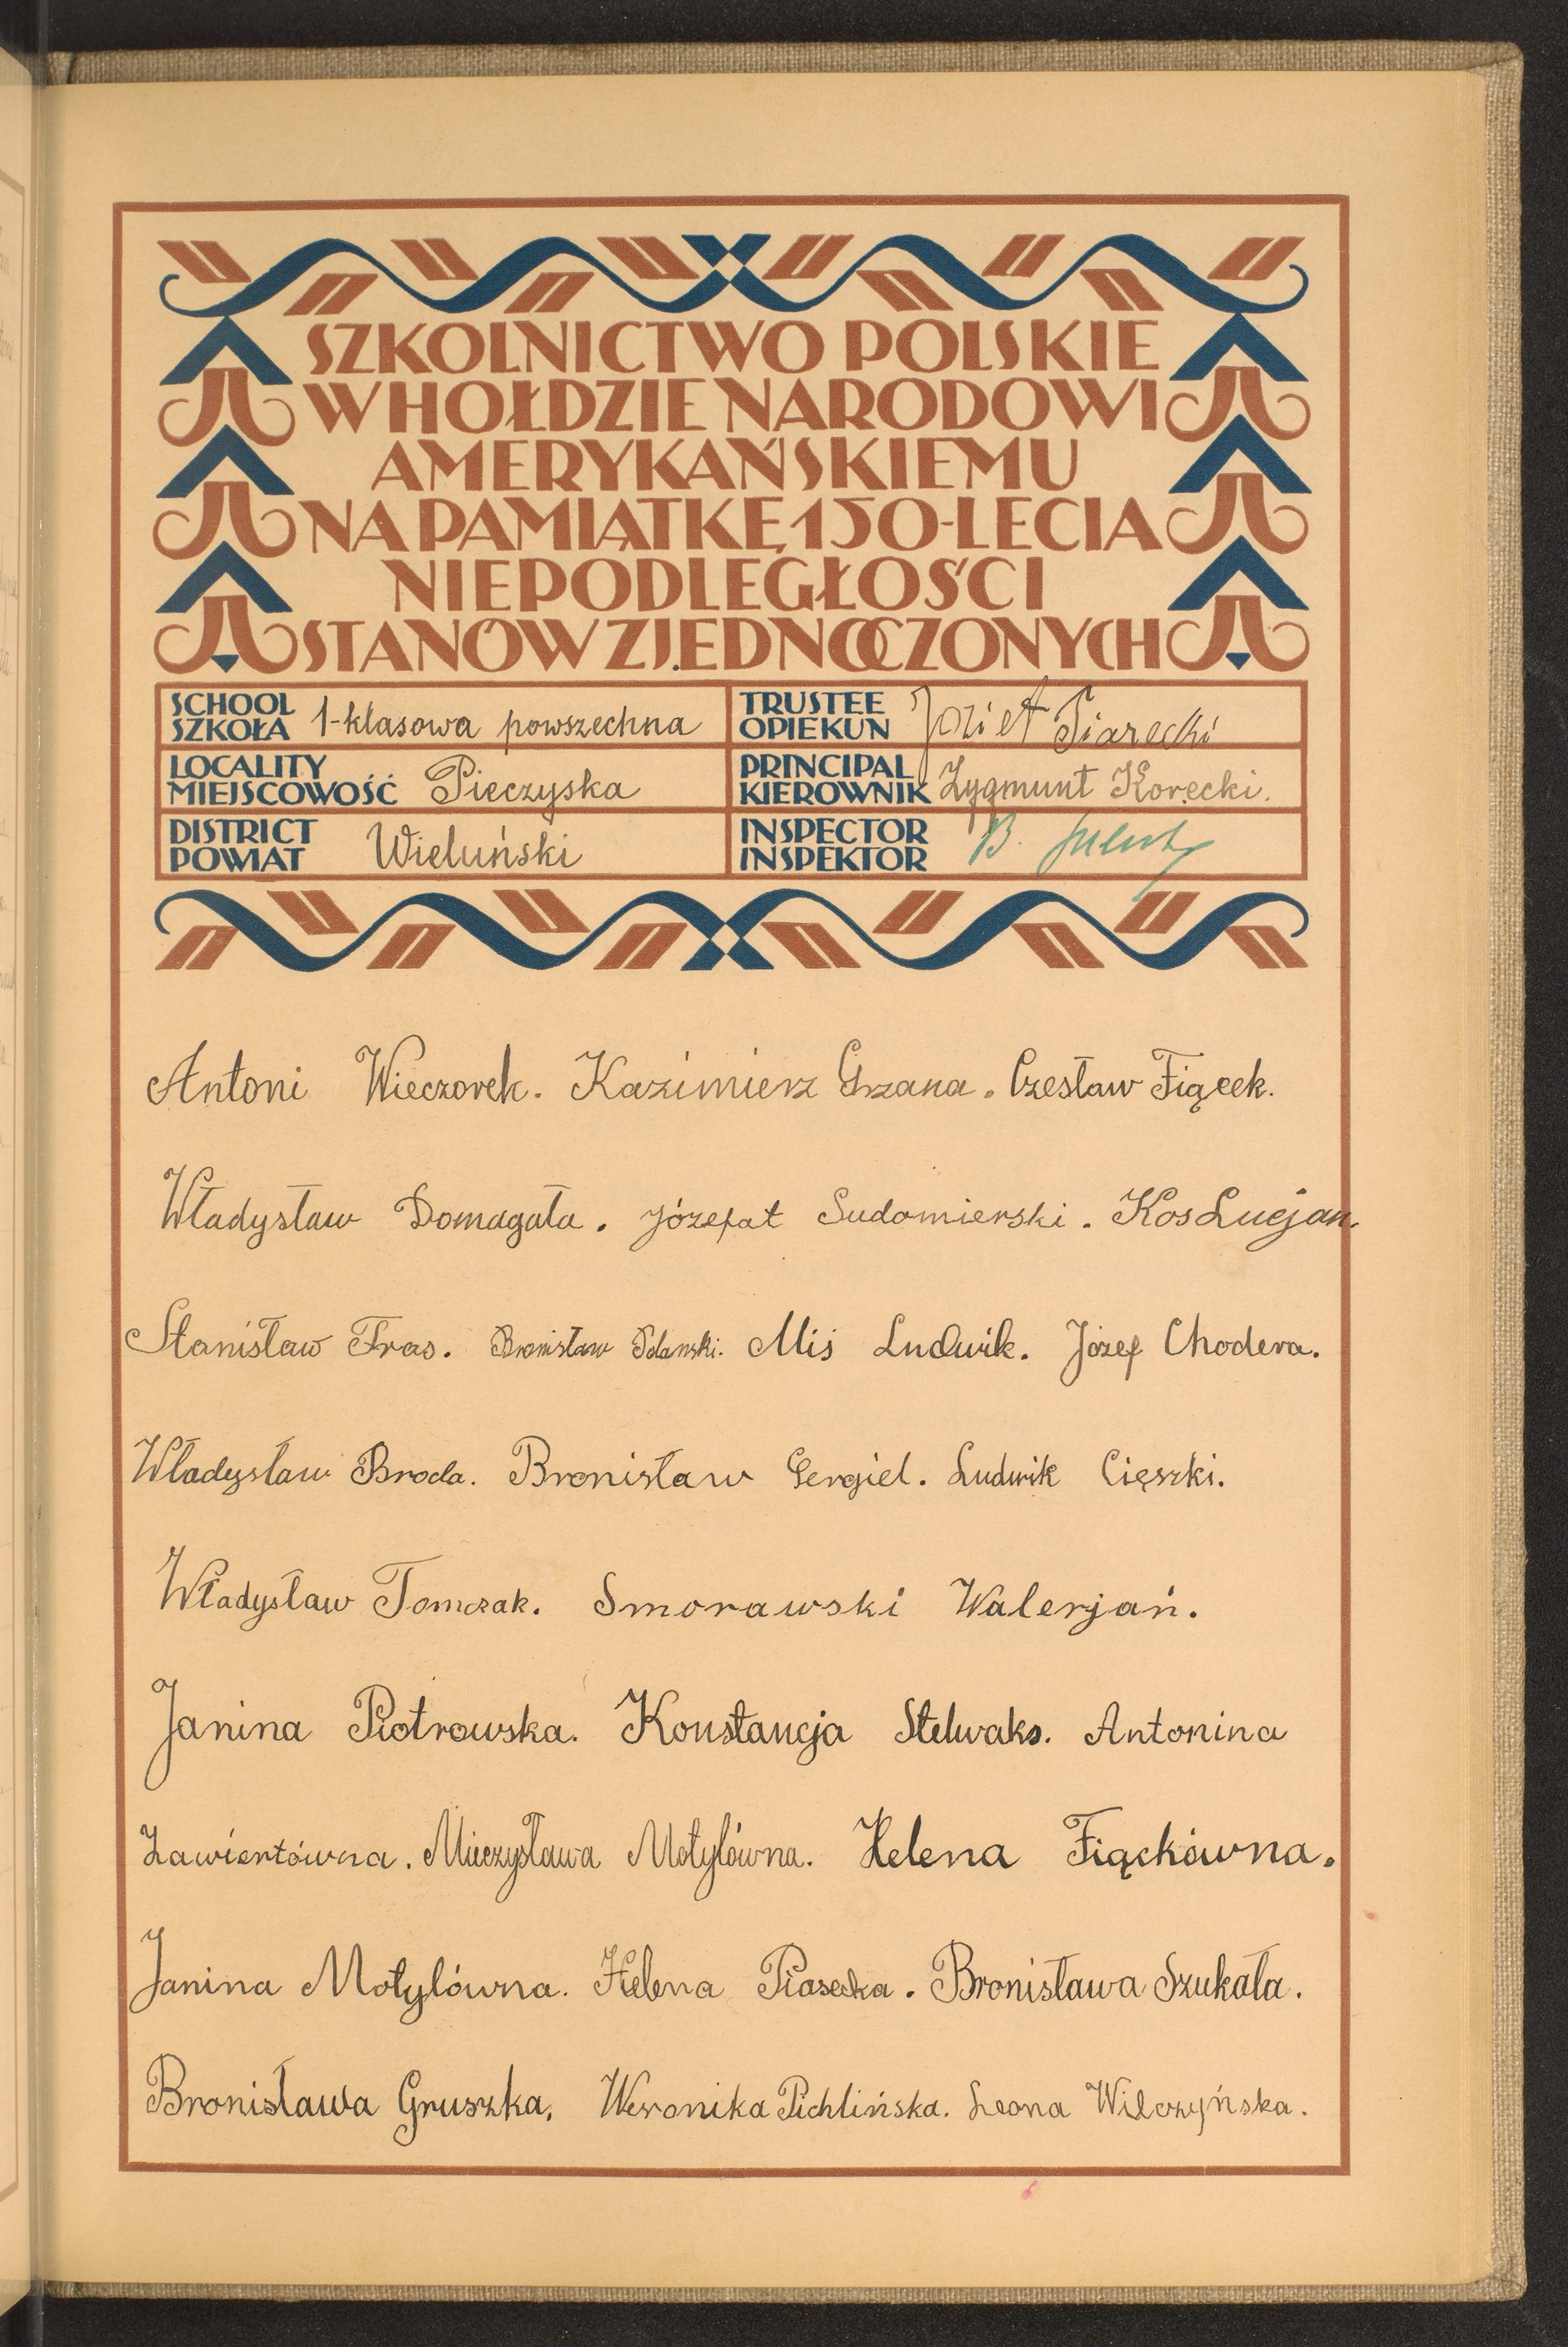 SZKOLNICTWO POLSKIE
W HOŁDZIE NARODOWI
AMERYKAŃSKIEMU
NA PAMIĄTKĘ 150-LECIA
NIEPODLEGŁOŚCI
STANÓW ZJEDNOCZONYCH
SCHOOL
SZKOŁA 1-klasowa powszechna
TRUSTEE
OPIEKUN Józef Piarecki
LOCALITY
MIEJSCOWOŚĆ Pieczyska
PRINCIPAL
KIEROWNIK Zygmunt Korecki.
DISTRICT
POWIAT Wieluński
INSPECTOR
INSPEKTOR B.
Antoni Wieczorek. Kazimierz Grzana. Czesław Fiącek.
Władysław Domagała. Józefat Sudomierski. Kos Lucjan.
Stanisław Fras. Bronisław Polanski. Miś Ludwik. Józef Chodera.
Władysław Broda. Bronisław Gergiel. Ludwik Cięszki.
Władysław Tomczak. Smorawski Walerjań.
Janina Piotrowska. Konstancja Stelwaks. Antonina
Zawiertówna. Mieczysława Motylówna. Helena Fiąckówna.
Janina Motylówna. Helena Piasecka. Bronisława Szukała.
Bronisława Gruszka, Weronika Pichlińska. Leona Wilczyńska.